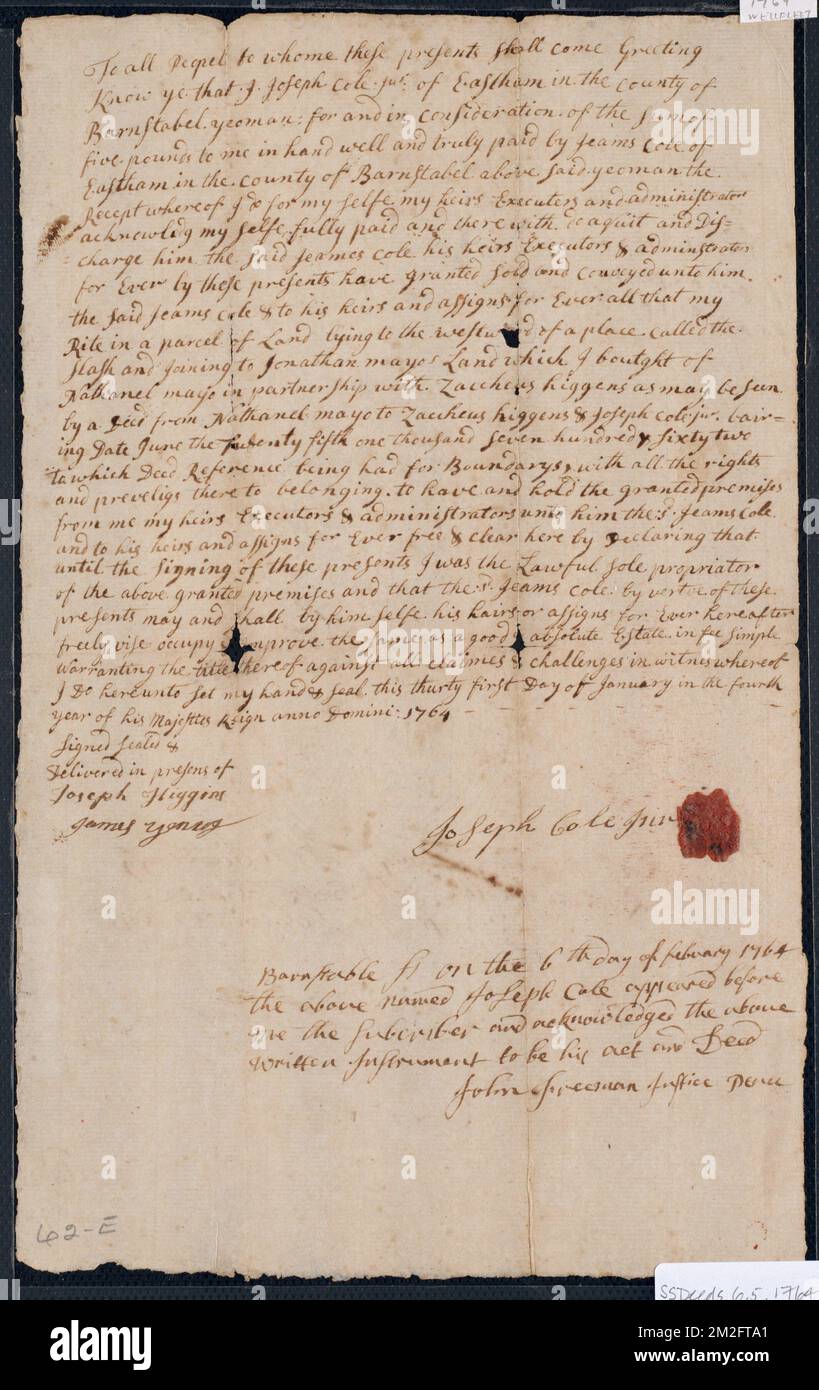 1764
WELLFLEET
To all Peopel to whome these presents shall come Greeting
Know ye that I Joseph Cole jur. of Eastham in the County of
Barnstabel yeoman: for and in consideration of the sum of
five pounds to me in hand well and truly paid by Jeams Cole of
Eastham in the County of Barnstabel above said yeoman the
Recept whereof I do for my selfe my heirs Executors and administrator
acknowlidg my selfe fully paid and there with do aquit and Dis=
=charge him the said Jeames Cole his heirs Executors & adminstrator
for Ever by these presents have granted sold and Conveyed unto him
the said Jeams Cole & to his heirs and assigns for Ever all that my
Rite in a parcel of Land lying to the westward of a place Called the
slash and Joining to Jonathan mayos Land which I boutght of
Nathanel mayo in partnership with Zaccheus higgens as may be seen
by a Deed from Nathanel mayo to Zaccheus higgens & Joseph Cole jur. bair=
ing Date June the twenty fifth one thousand seven hundred & sixty two
to which Deed Reference being had for Boundarys, with all the rights
and preveligs there to belonging. to have and hold the granted premises
from me my heirs Executors & administrators unto him the sd. Jeams Cole
and to his heirs and assigns for Ever free & clear here by Declaring that
until the signing of these presents I was the Lawful sole propriator
of the above granted premises and that the sd. Jeams Cole: by vertue of these
presents may and shall by him selfe his hairs or assigns for Ever hereafter
freely vise occupy & improve the same as a good & absolute Estate in fee simple
warranting the title thereof against all claimes & challenges in witnes whereof
I Do hereunto set my hand & seal this thurty first Day of January in the fourth
year of his Majesties Reign anno Domini: 1764
Signed sealed &
Delivered in presens of
Joseph Higgins
James young
Joseph Cole Juir
Barnstable ss on the 6th day of febuary 1764
the above named Joseph Cole appeared before
me the subcriber and acknowledged the above
written Instrument to be his act and Deed
John Freeman Justice Peace
62-E
SSDeeds 6.5.1764
alamy
Image ID: 2M2FTA1
www.alamy.com